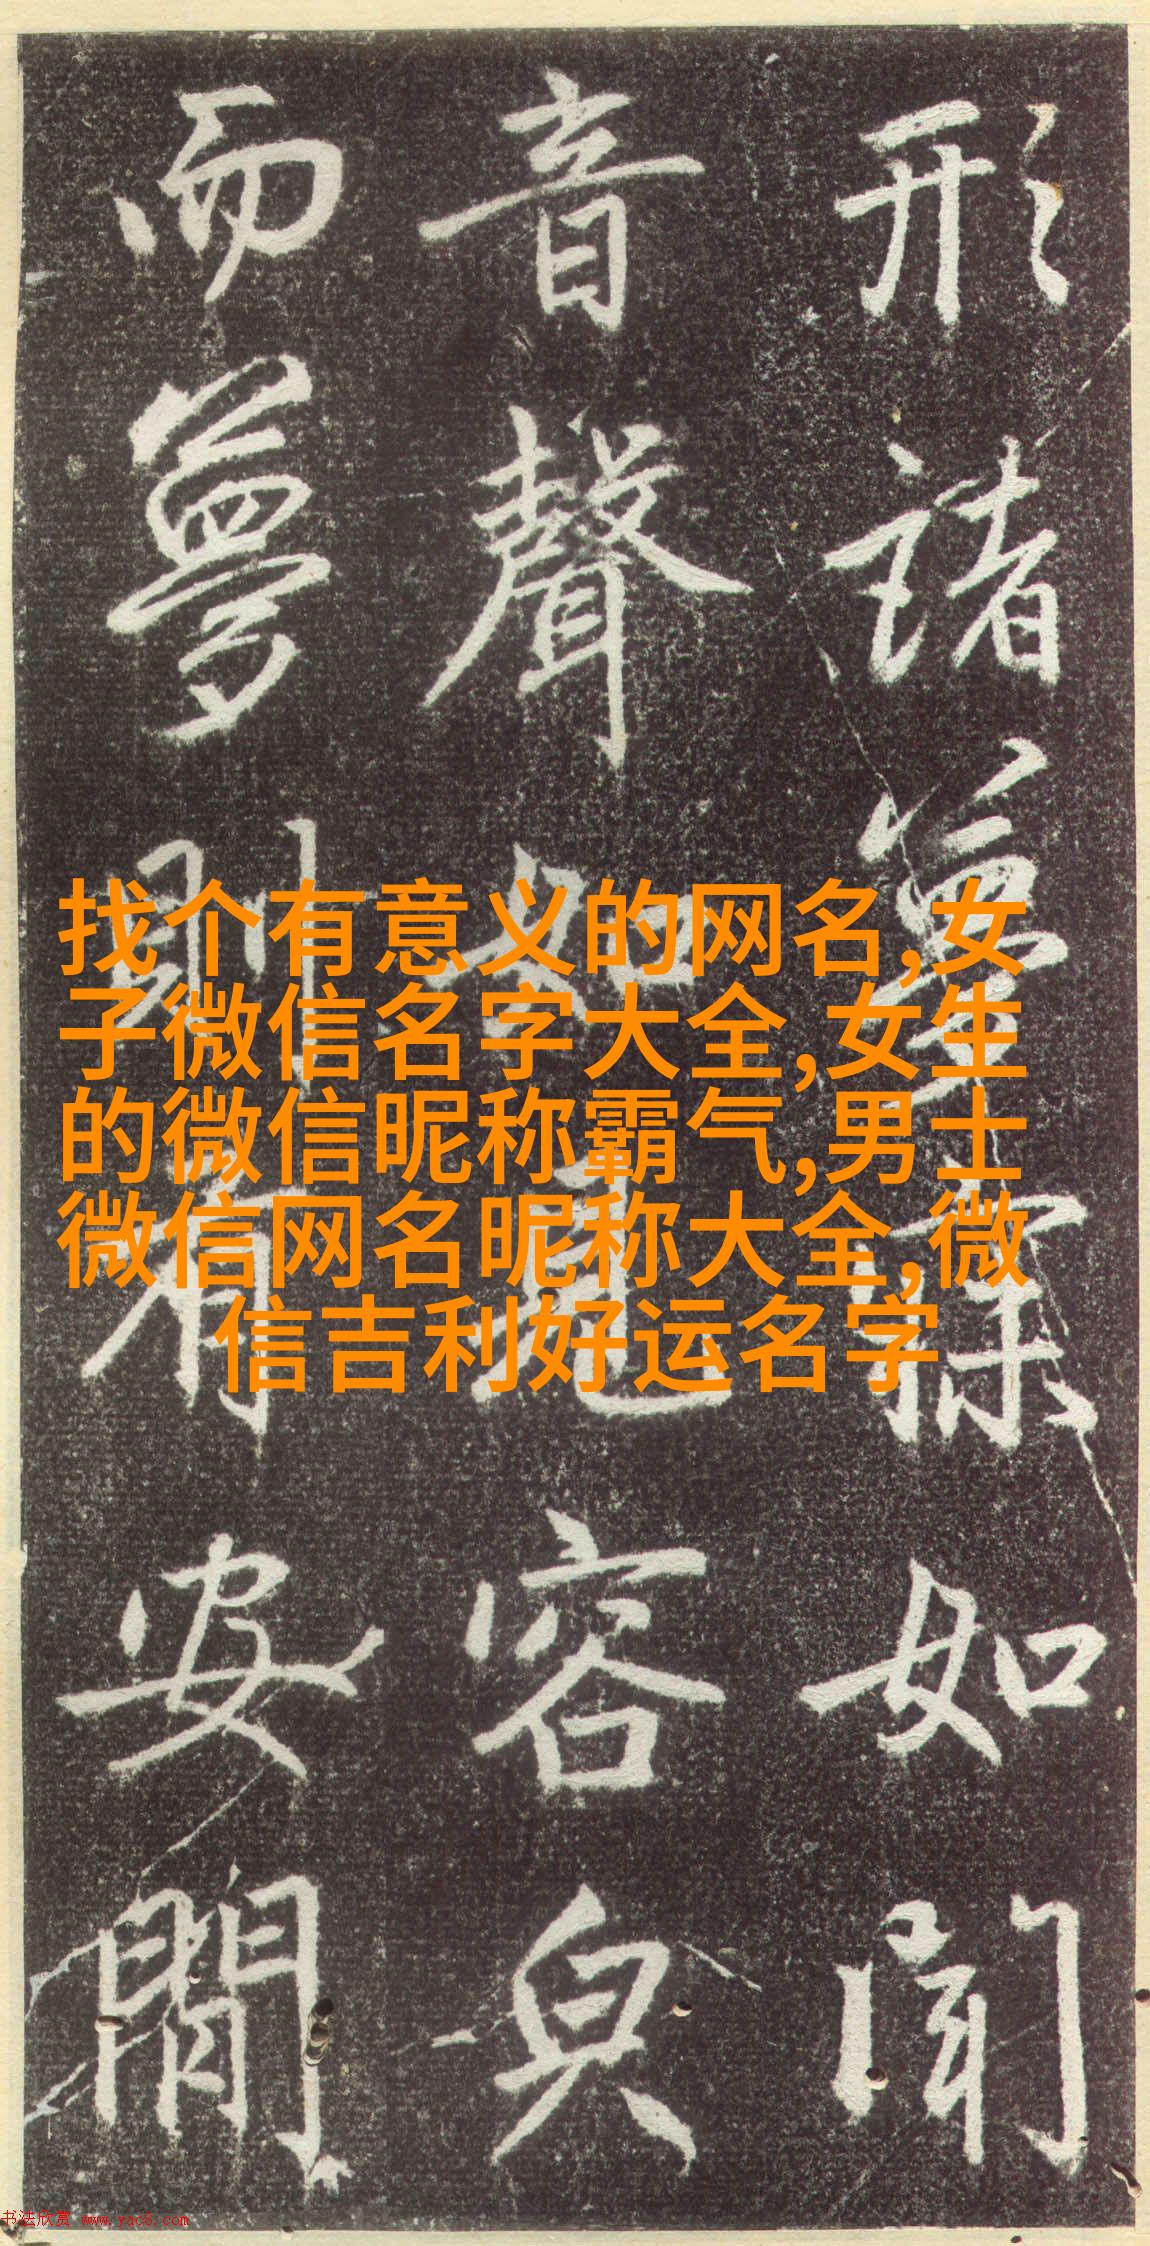 形諸夢寐如聞
音聲如見容皃
而夢則有安閒
找个有意义的网名,女
子微信名字大全,女生
的微信昵称霸气,男士
微信网名昵称大全,微
信吉利好运名字
书法欣赏 www.yac8.com